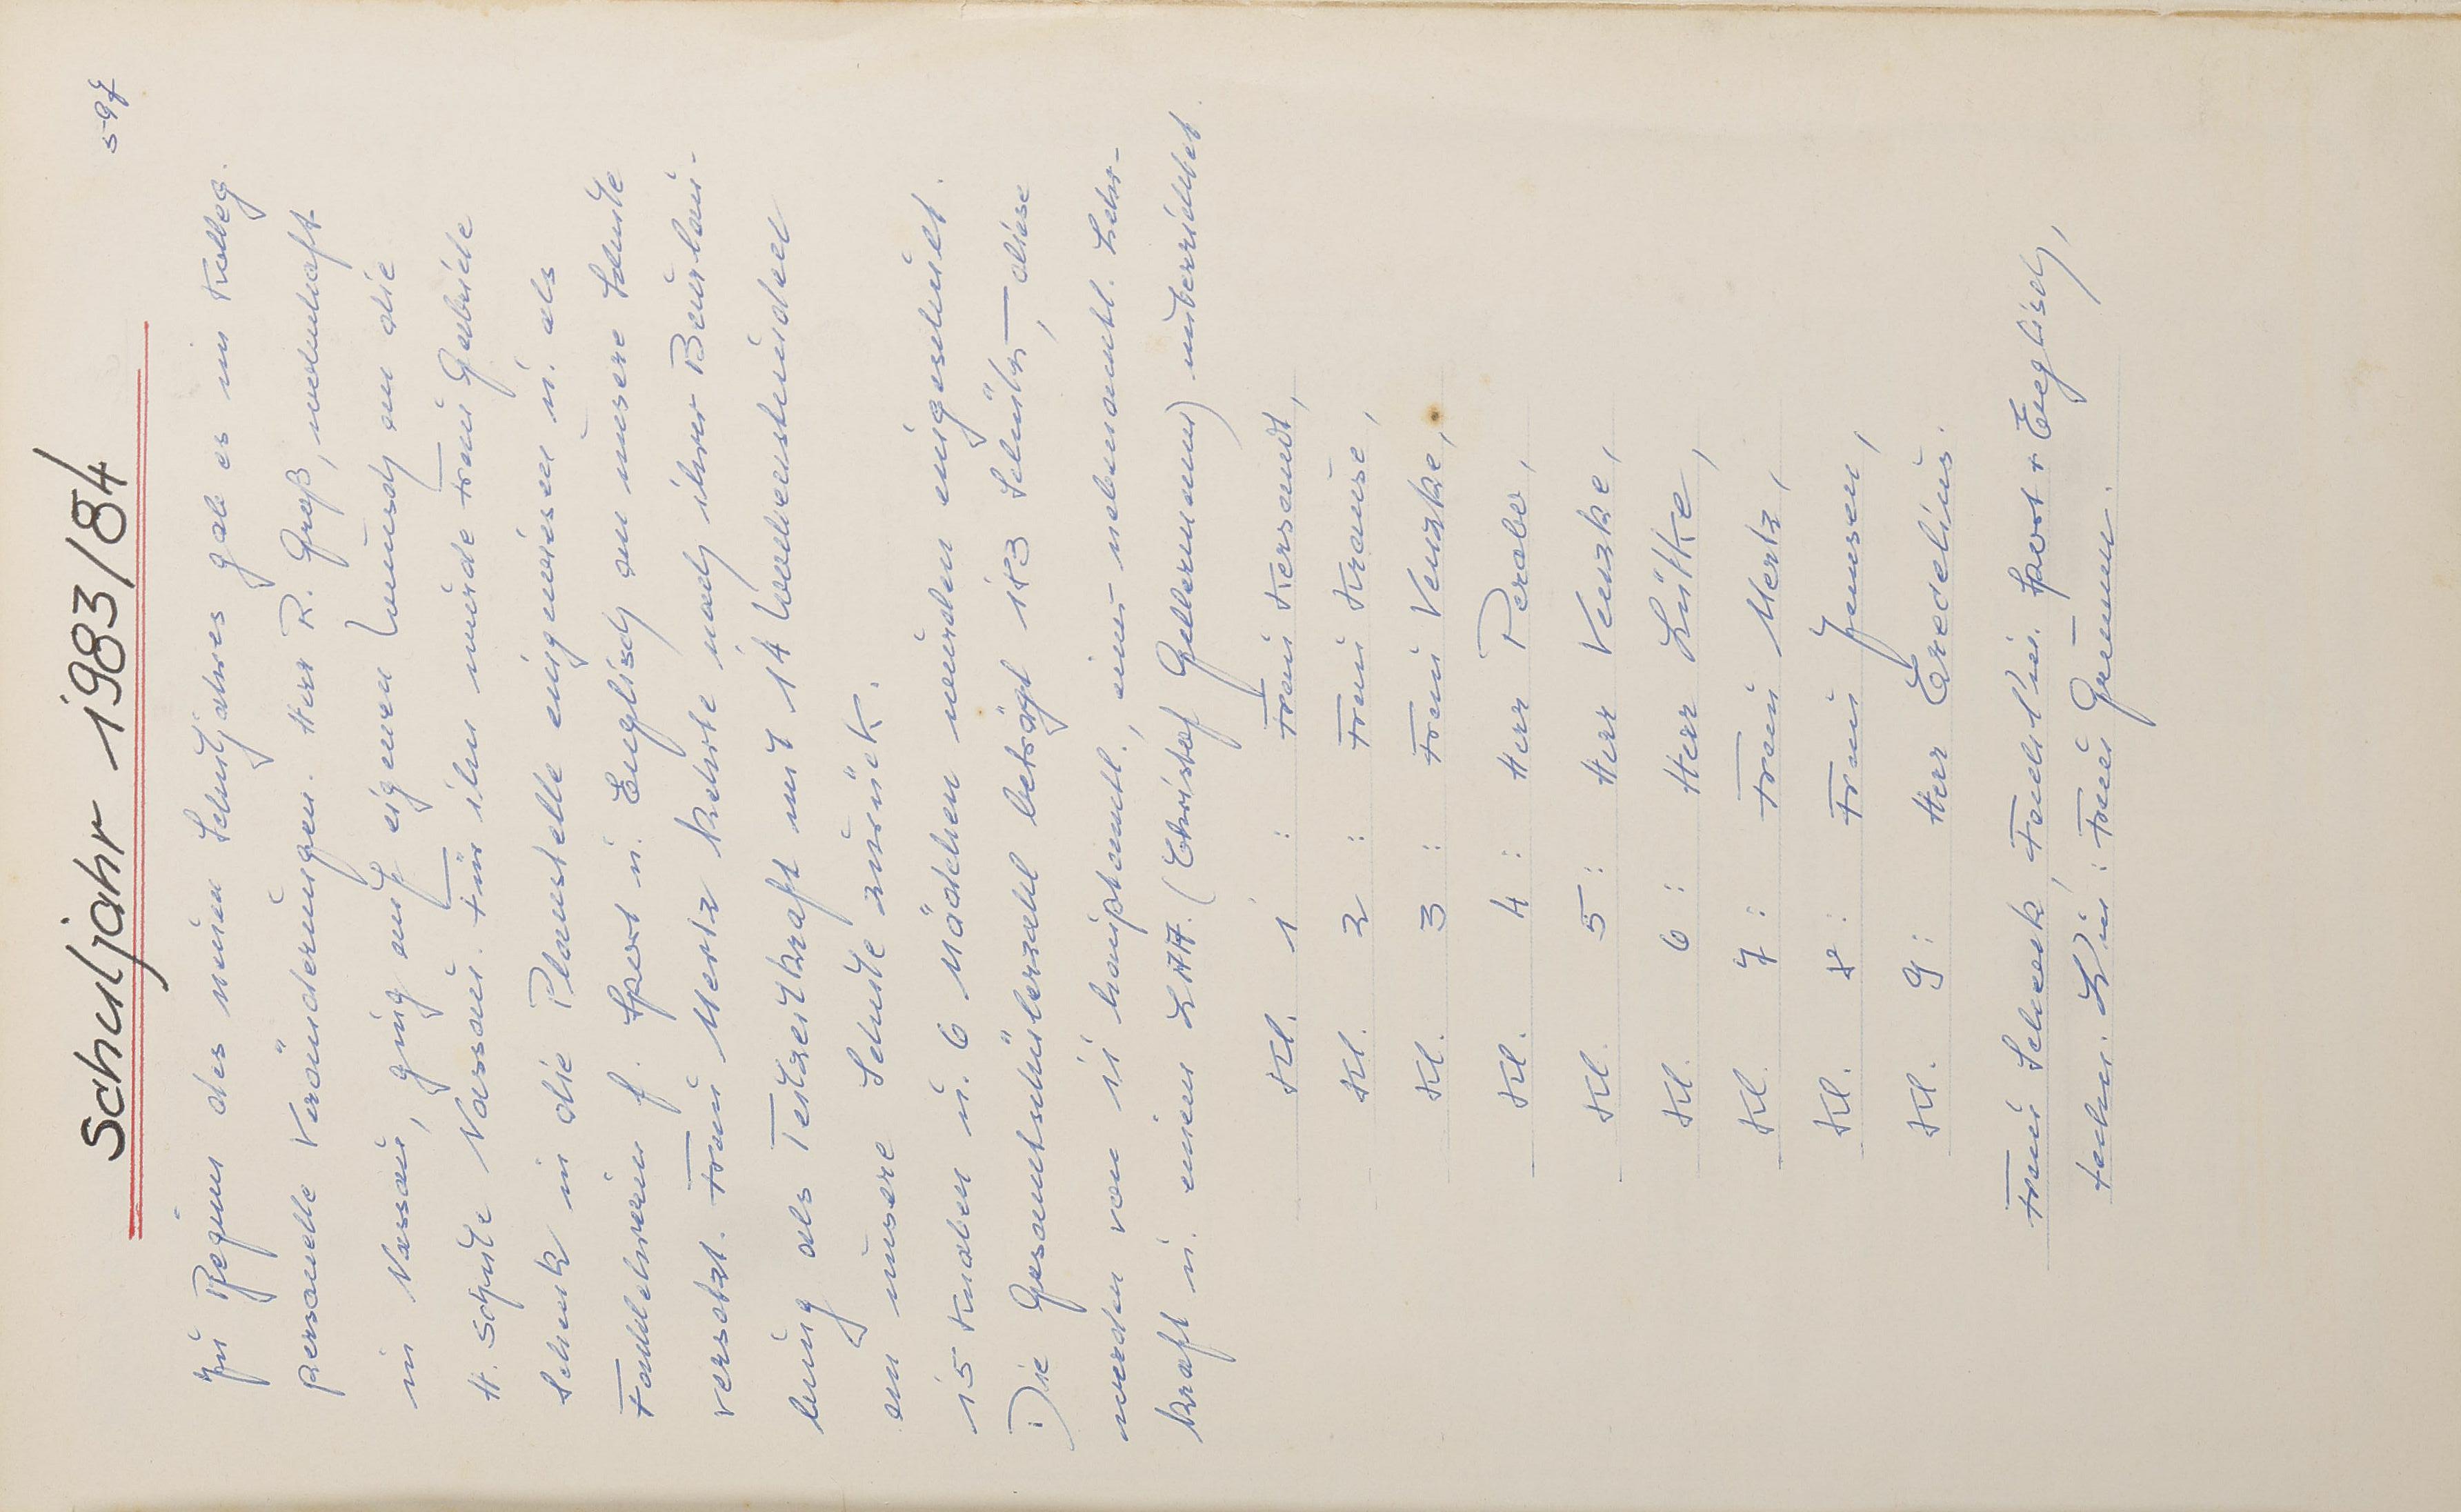 597
Schuljahr 1983/84
Zu Beginn des neuen Schuljahres gab es im Kolleg.
personelle Veränderungen. Herr R. Groß, wohnhaft
in Nassau, ging auf eigenen Wunsch an die
H. Schule Nassau. Für ihn wurde Frau Gabriele
Schenk in die Planstelle eingewiesen u. als
Fachlehrerin f. Sport u. Englisch an unsere Schule
versetzt. Frau Mertz kehrte nach ihrer Beurlau-
bung als Teilzeitkraft mit 14 Wochenstunden
an unsere Schule zurück.
15 Knaben u. 6 Mädchen wurden eingeschult.
Die Gesamtschülerzahl beträgt 183 Schüler, diese
werden von 11 hauptamtl., einer nebenamtl. Lehr-
kraft u. einem LAA. (Christof Gellermann) unterrichtet.
Kl. 1 : Frau Kersandt,
Kl. 2 : Frau Krause,
Kl. 3 : Frau Venzke,
Kl. 4 : Herr Perabo,
Kl. 5 : Herr Venzke,
Kl. 6 : Herr Lütke,
Kl. 7 : Frau Mertz,
Kl. 8 : Frau Jennsen,
Kl. 9 : Herr Credelius.
Frau Schenk, Fachl'in. Sport + Englisch,
techn. L'in : Frau Grümm.